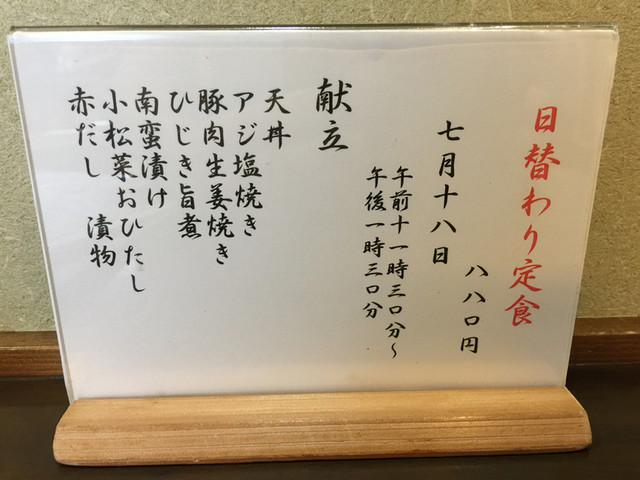 日替わり定食
八八〇円
七月十八日
午前十一時三〇分～
午後一時三〇分
献立
天丼
アジ塩焼き
豚肉生姜焼き
ひじき旨煮
南蛮漬け
小松菜おひたし
赤だし　漬物